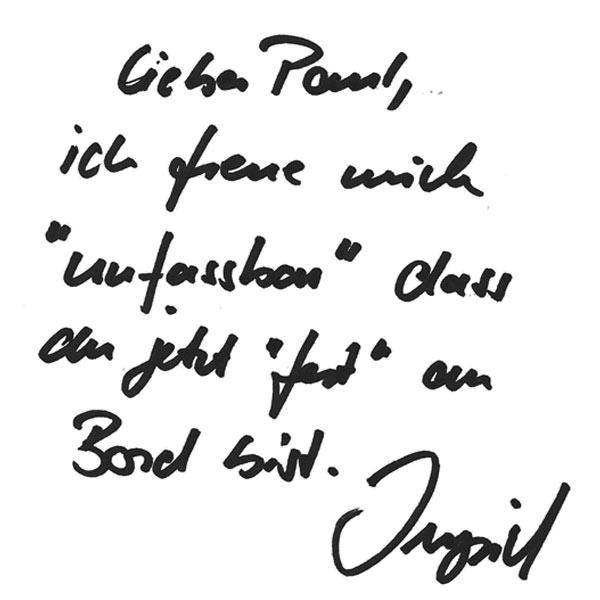 Lieber Paul,
ich freue mich
"unfassbar" dass
du jetzt "fest" an
Bord bist.
Ingrid